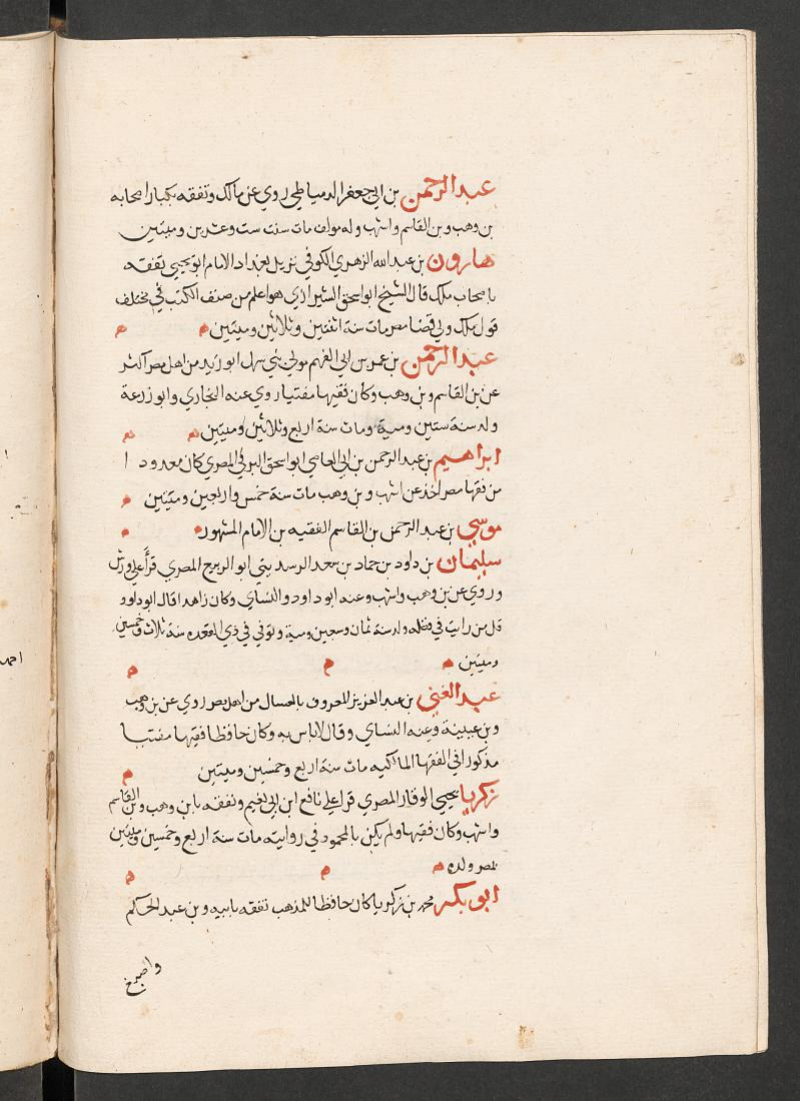 عبد الرحمن بن ابي جعفر الدمياطي روي عن مالك وتفقه بكبار اصحابه
بن وهب وبن القاسم واشهب وله مولف مات سنت ست وعشرين وميتين
هارون بن عبد الله الزهري الكوفي نزيل بغداد الامام ابو يحيي تفقه
باصحاب ملك قال الشيخ ابو اسحق الشيرازي هو اعلم من صنف الكتب في مختلف
قول ملك ولي قضا مصر مات سنة اثنتين وثلاثين وميتين
عبد الرحمن بن عمر بن ابي الغهم مولي بني سهل ابو زيد من اهل مصر اكثر
عن بن القاسم وبن وهب وكان فقيها مفتيا روي عنه البخاري وابو زرعة
ولد سنة ستين ومية ومات سنة اربع وثلاثين وميتين
ابراهيم بن عبد الرحمن بن ابي العاصي ابو اسحق البرقي المصري كان معدودا
من فقها مصر اخذ عن اشهب وبن وهب مات سنة خمس واربعين وميتين
موسي بن عبد الرحمن بن القاسم الفقيه بن الامام المشهور
سليمان بن داود بن حماد بن سعد الرسديني ابو الربيع المصري قرأ علي ورش
وروي عن بن وهب واشهب وعنه ابو داود والنساي وكان زاهدا قال ابو داود
قل من رايت في فضله ولد سنة ثمان وسبعين ومية وتوفي في ذي القعده سنة ثلاث وخمسين
وميتين
عبد الغني بن عبد العزيز المعروف بالعسال من اهل مصر روي عن بن وهب
وبن عيينة وعنه النساي وقال لاباس به وكان حافظا فقيها مفتيا
مذكورا في الفقها المالكيه مات سنة اربع وخمسين وميتين
زكريا يحيي الوقار المصري قرا علي نافع ابن ابي نعيم وتفقه بابن وهب وبن القاسم
واشهب وكان فقيها ولم يكن بالمحمود في روايته مات سنة اربع وخمسين وميتين
بمصر ولده
ابو بكر محمد بن زكريا كان حافظا للمذهب تفقه بابيه وبن عبد الحكم
واصبغ